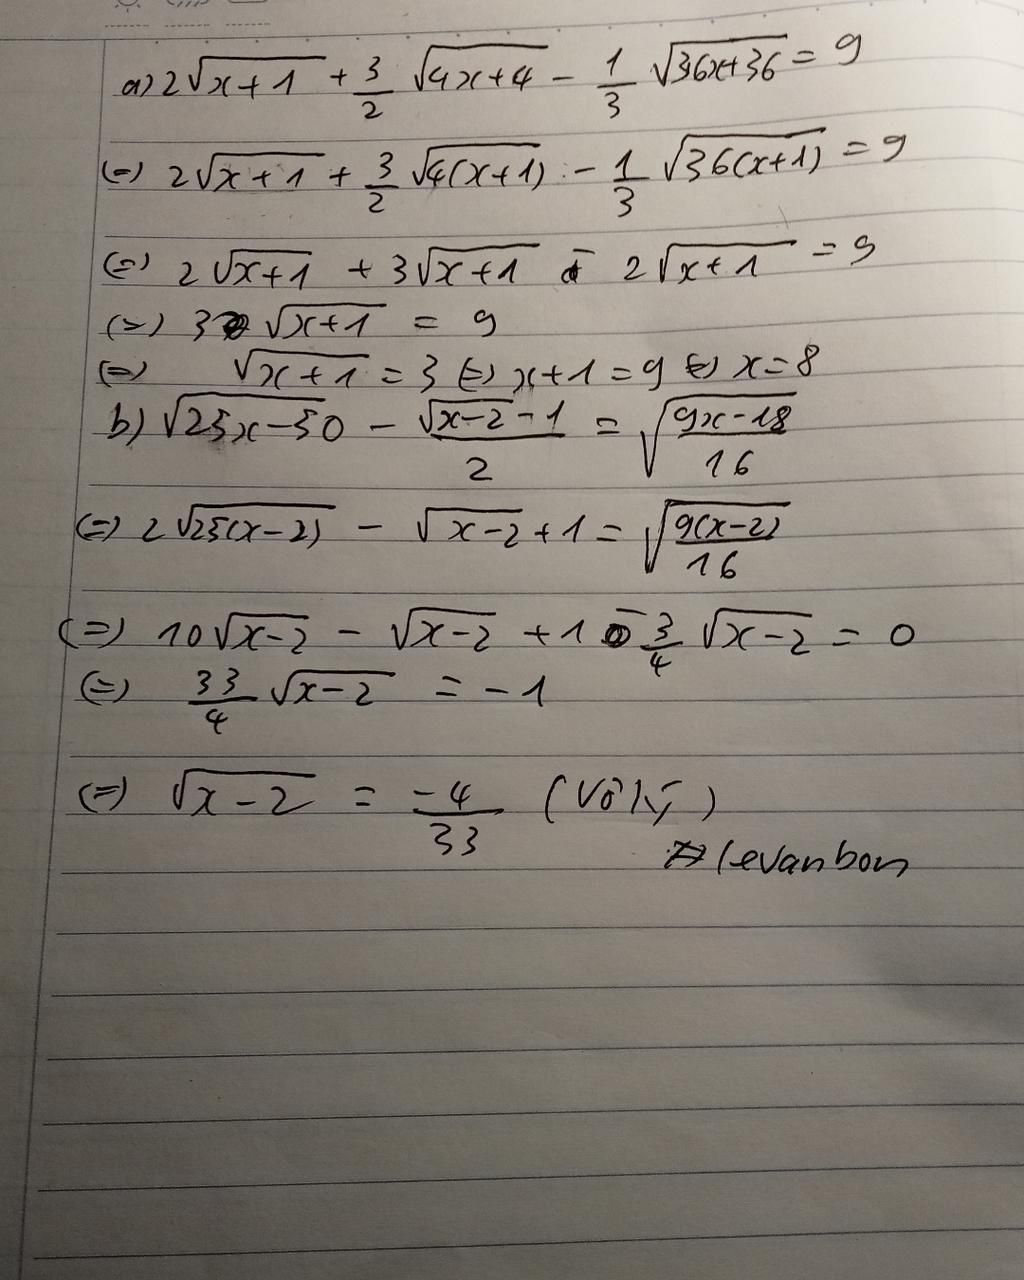 a) 2√(x+1) + 3/2 √(4x+4) - 1/3 √(36x+36) = 9
(=) 2√(x+1) + 3/2 √(4(x+1)) - 1/3 √(36(x+1)) = 9
(=) 2√(x+1) + 3√(x+1) - 2√(x+1) = 9
(=) 3√(x+1) = 9
(=) √(x+1) = 3 (=) x+1 = 9 (=) x = 8
b) √(25x-50) - (√(x-2) - 1)/2 = √((9x-18)/16)
(=) 2√(25(x-2)) - √(x-2) + 1 = √(9(x-2)/16)
(=) 10√(x-2) - √(x-2) + 1 - 3/4 √(x-2) = 0
(=) 33/4 √(x-2) = -1
(=) √(x-2) = -4/33 (Vô lý)
levanbon